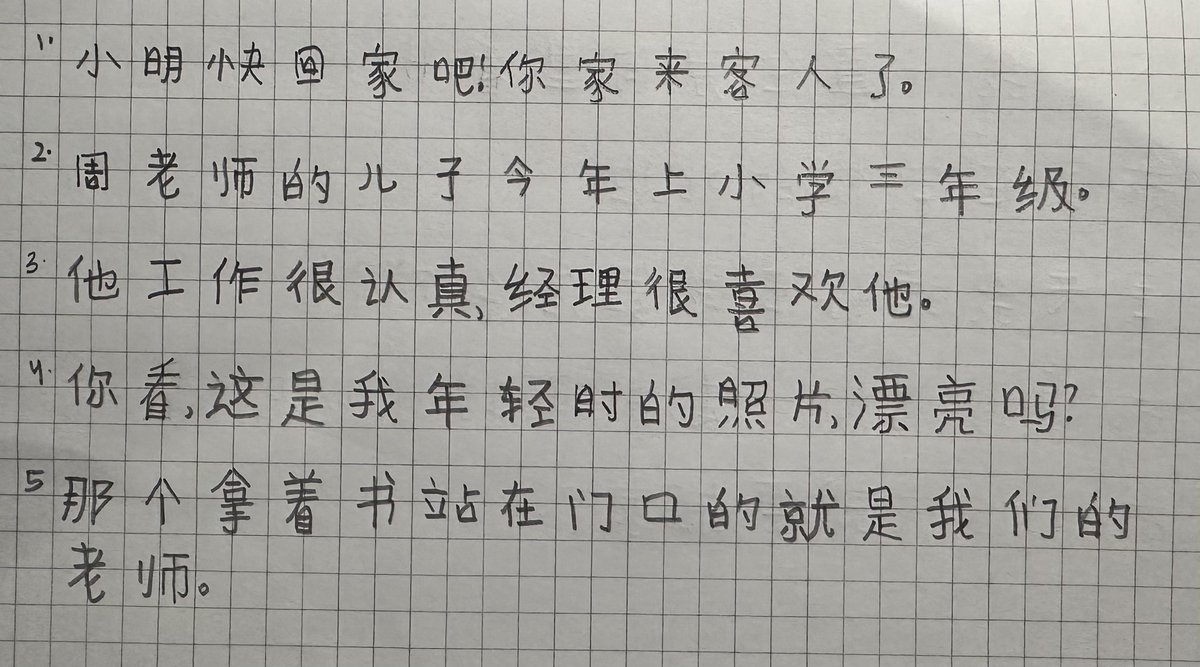 1. 小明快回家吧!你家来客人了。
2. 周老师的儿子今年上小学三年级。
3. 他工作很认真,经理很喜欢他。
4. 你看,这是我年轻时的照片,漂亮吗?
5 那个拿着书站在门口的就是我们的
老师。